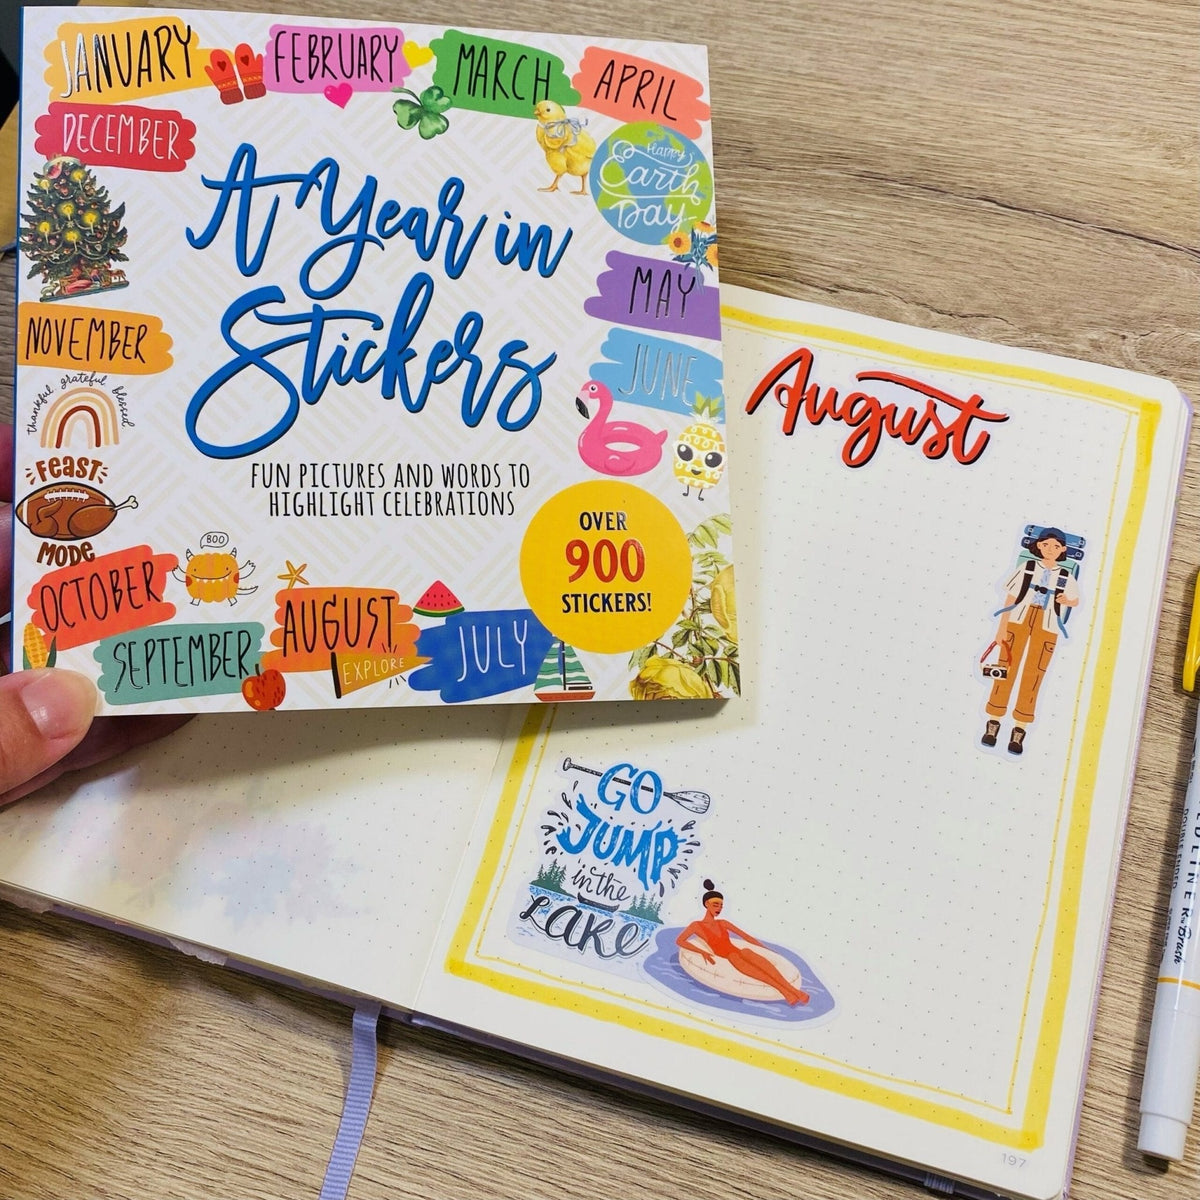 JANUARY
FEBRUARY
MARCH
APRIL
DECEMBER
Happy
Earth
Day
A Year in
Stickers
MAY
NOVEMBER
JUNE
thankful grateful blessed
FEAST
MODE
FUN PICTURES AND WORDS TO
HIGHLIGHT CELEBRATIONS
OVER
900
STICKERS!
BOO
OCTOBER
SEPTEMBER
AUGUST
EXPLORE
JULY
August
GO
JUMP
in the
LAKE
197